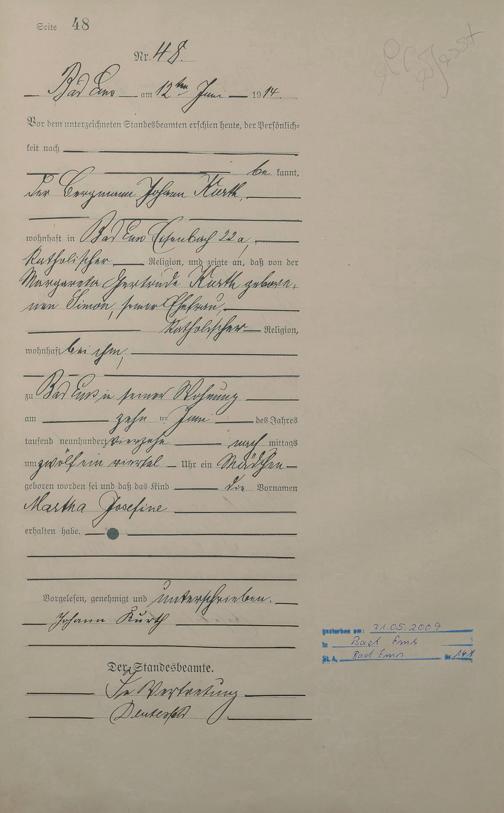 Seite 48
Nr. 48.
Bad Ems am 12ten Juni 1914.
Vor dem unterzeichneten Standesbeamten erschien heute, der Persönlich-
keit nach
be kannt,
der Bergmann Johann Kurth,
wohnhaft in Bad Ems Eisenbach 22a,
katholischer Religion, und zeigte an, daß von der
Margareta Gertrude Kurth gebore-
nen Simon, seiner Ehefrau,
katholischer Religion,
wohnhaft bei ihm,
zu Bad Ems in seiner Wohnung
am zehn ten Juni des Jahres
tausend neunhundert vierzehn nach mittags
um zwölf ein viertel Uhr ein Mädchen
geboren worden sei und daß das Kind die Vornamen
Martha Josefine
erhalten habe.
Vorgelesen, genehmigt und unterschrieben.
Johann Kurth
Der Standesbeamte.
In Vertretung
gestorben am: 31.05.2009
in Bad Ems
St. A. Bad Ems Nr.